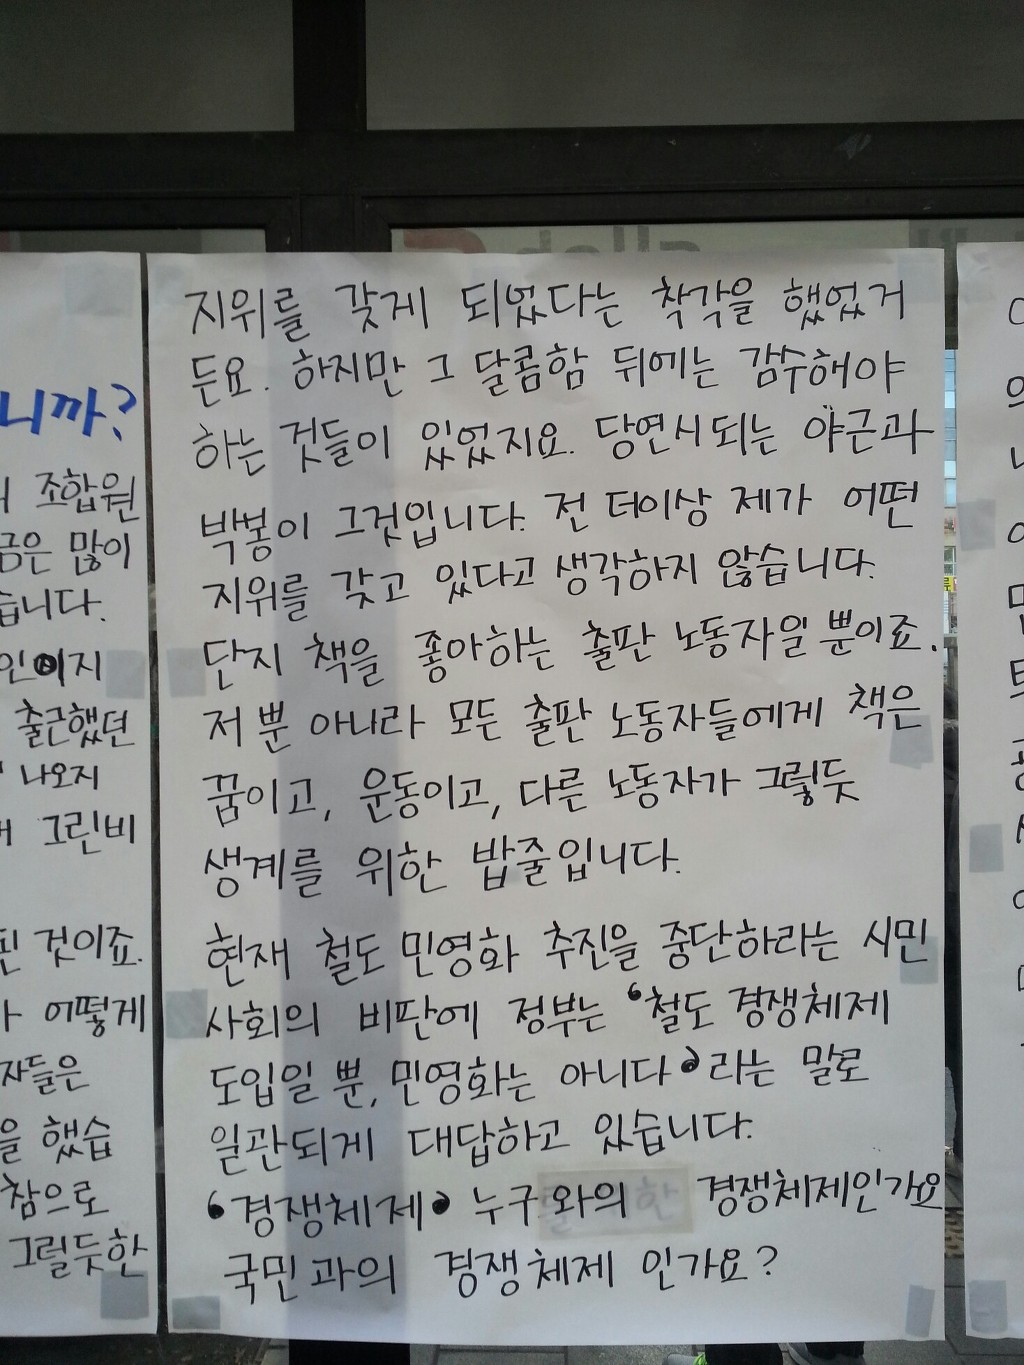 니까?
조합원
금은 많이
습니다.
인이지
출근했던
나오지
그린비
것이죠.
어떻게
자들은
을 했습
참으로
그럴듯한
지위를 갖게 되었다는 착각을 했었거
든요. 하지만 그 달콤함 뒤에는 감수해야
하는 것들이 있었지요. 당연시되는 야근과
박봉이 그것입니다. 전 더이상 제가 어떤
지위를 갖고 있다고 생각하지 않습니다.
단지 책을 좋아하는 출판 노동자일 뿐이죠.
저 뿐 아니라 모든 출판 노동자들에게 책은
꿈이고, 운동이고, 다른 노동자가 그렇듯
생계를 위한 밥줄입니다.
현재 철도 민영화 추진을 중단하라는 시민
사회의 비판에 정부는 ‘철도 경쟁체제
도입일 뿐, 민영화는 아니다’라는 말로
일관되게 대답하고 있습니다.
‘경쟁체제’ 누구와의 경쟁체제인가요
국민과의 경쟁체제 인가요?